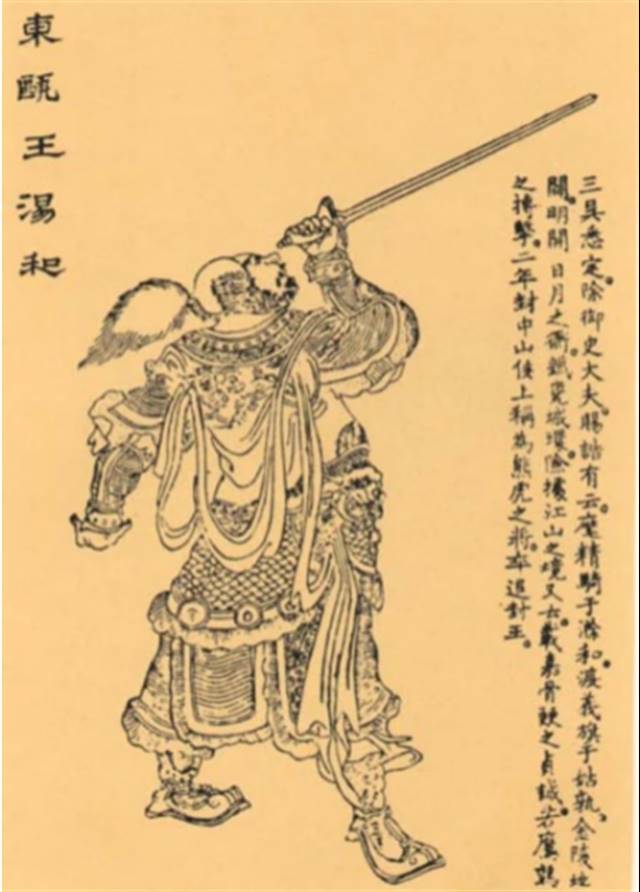 東甌王湯和
三吳悉定。除御史大夫。賜誥有云。麾精騎于滁和。渡義旗于姑孰。金陵地
闢。明開日月之衢。鐵甕城墮。險據江山之境。又云。載嘉骨鯁之貞誠。若鷹鸇
之搏擊。二年封中山侯。上稱為熊虎之將。卒追封王。